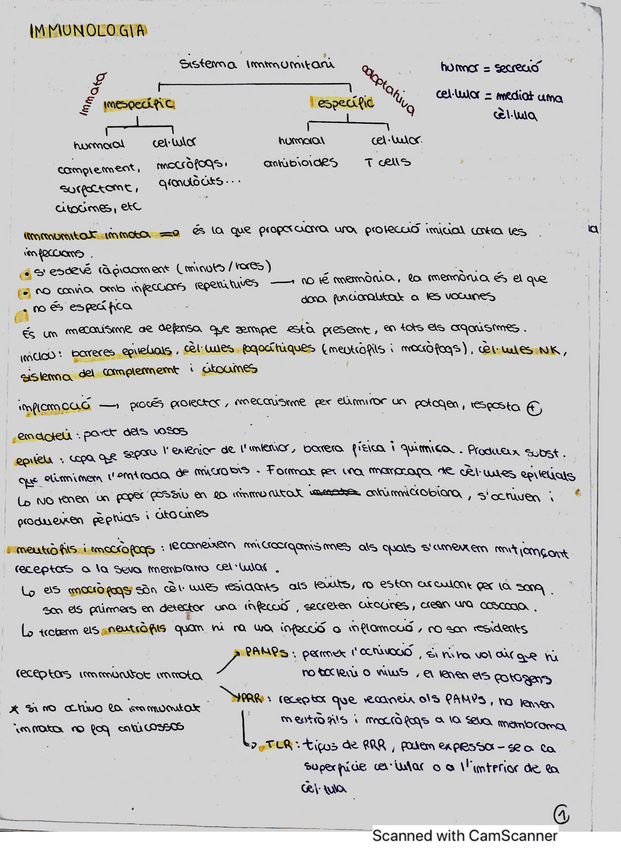 IMMUNOLOGIA
Sistema immunitari
humor = secreció
cel·lular = mediat una
cèl·lula
Immata
adaptativa
inespecífic
específic
humoral cel·lular
humoral cel·lular
complement,
surfactant,
citocines, etc
macròfags,
granulòcits...
antibioides
T cells
immunitat innata => és la que proporciona una protecció inicial contra les
infeccions.
s'esdevé ràpidament (minuts/hores)
no canvia amb infeccions repetitives → no té memòria, la memòria és el que
dona funcionalitat a les vacunes
no és específica
És un mecanisme de defensa que sempre està present, en tots els organismes.
inclou: barreres epitelials, cèl·lules fagocítiques (neutròfils i macròfags), cèl·lules NK,
sistema del complement i citocines
inflamació → procés protector, mecanisme per eliminar un patogen, resposta +
endoteli: paret dels vasos
epiteli: capa que separa l'exterior de l'interior, barrera física i química. Produeix subst.
que eliminen l'entrada de microbis. Format per una monocapa de cèl·lules epitelials
↳ NO tenen un paper passiu en la immunitat antimicrobiana, s'activen i
produeixen pèptids i citocines
neutròfils i macròfags: reconeixen microorganismes als quals s'uneixen mitjançant
receptors a la seva membrana cel·lular.
↳ els macròfags són cèl·lules residents als teixits, no estan circulant per la sang.
son els primers en detectar una infecció, secreten citocines, creen una cascada.
↳ trobem els neutròfils quan hi ha una infecció o inflamació, no son residents
receptors immunitat innata
PAMPs: permet l'activació, si hi ha vol dir que hi
ha bacteri o virus, el tenen els patògens
* si no activo la immunitat
innata no faig anticossos
PRR: receptor que reconeix els PAMPs, ho tenen
neutròfils i macròfags a la seva membrana
↳ TLR: tipus de PRR, poden expressar-se a la
superfície cel·lular o a l'interior de la
cèl·lula
1
Scanned with CamScanner